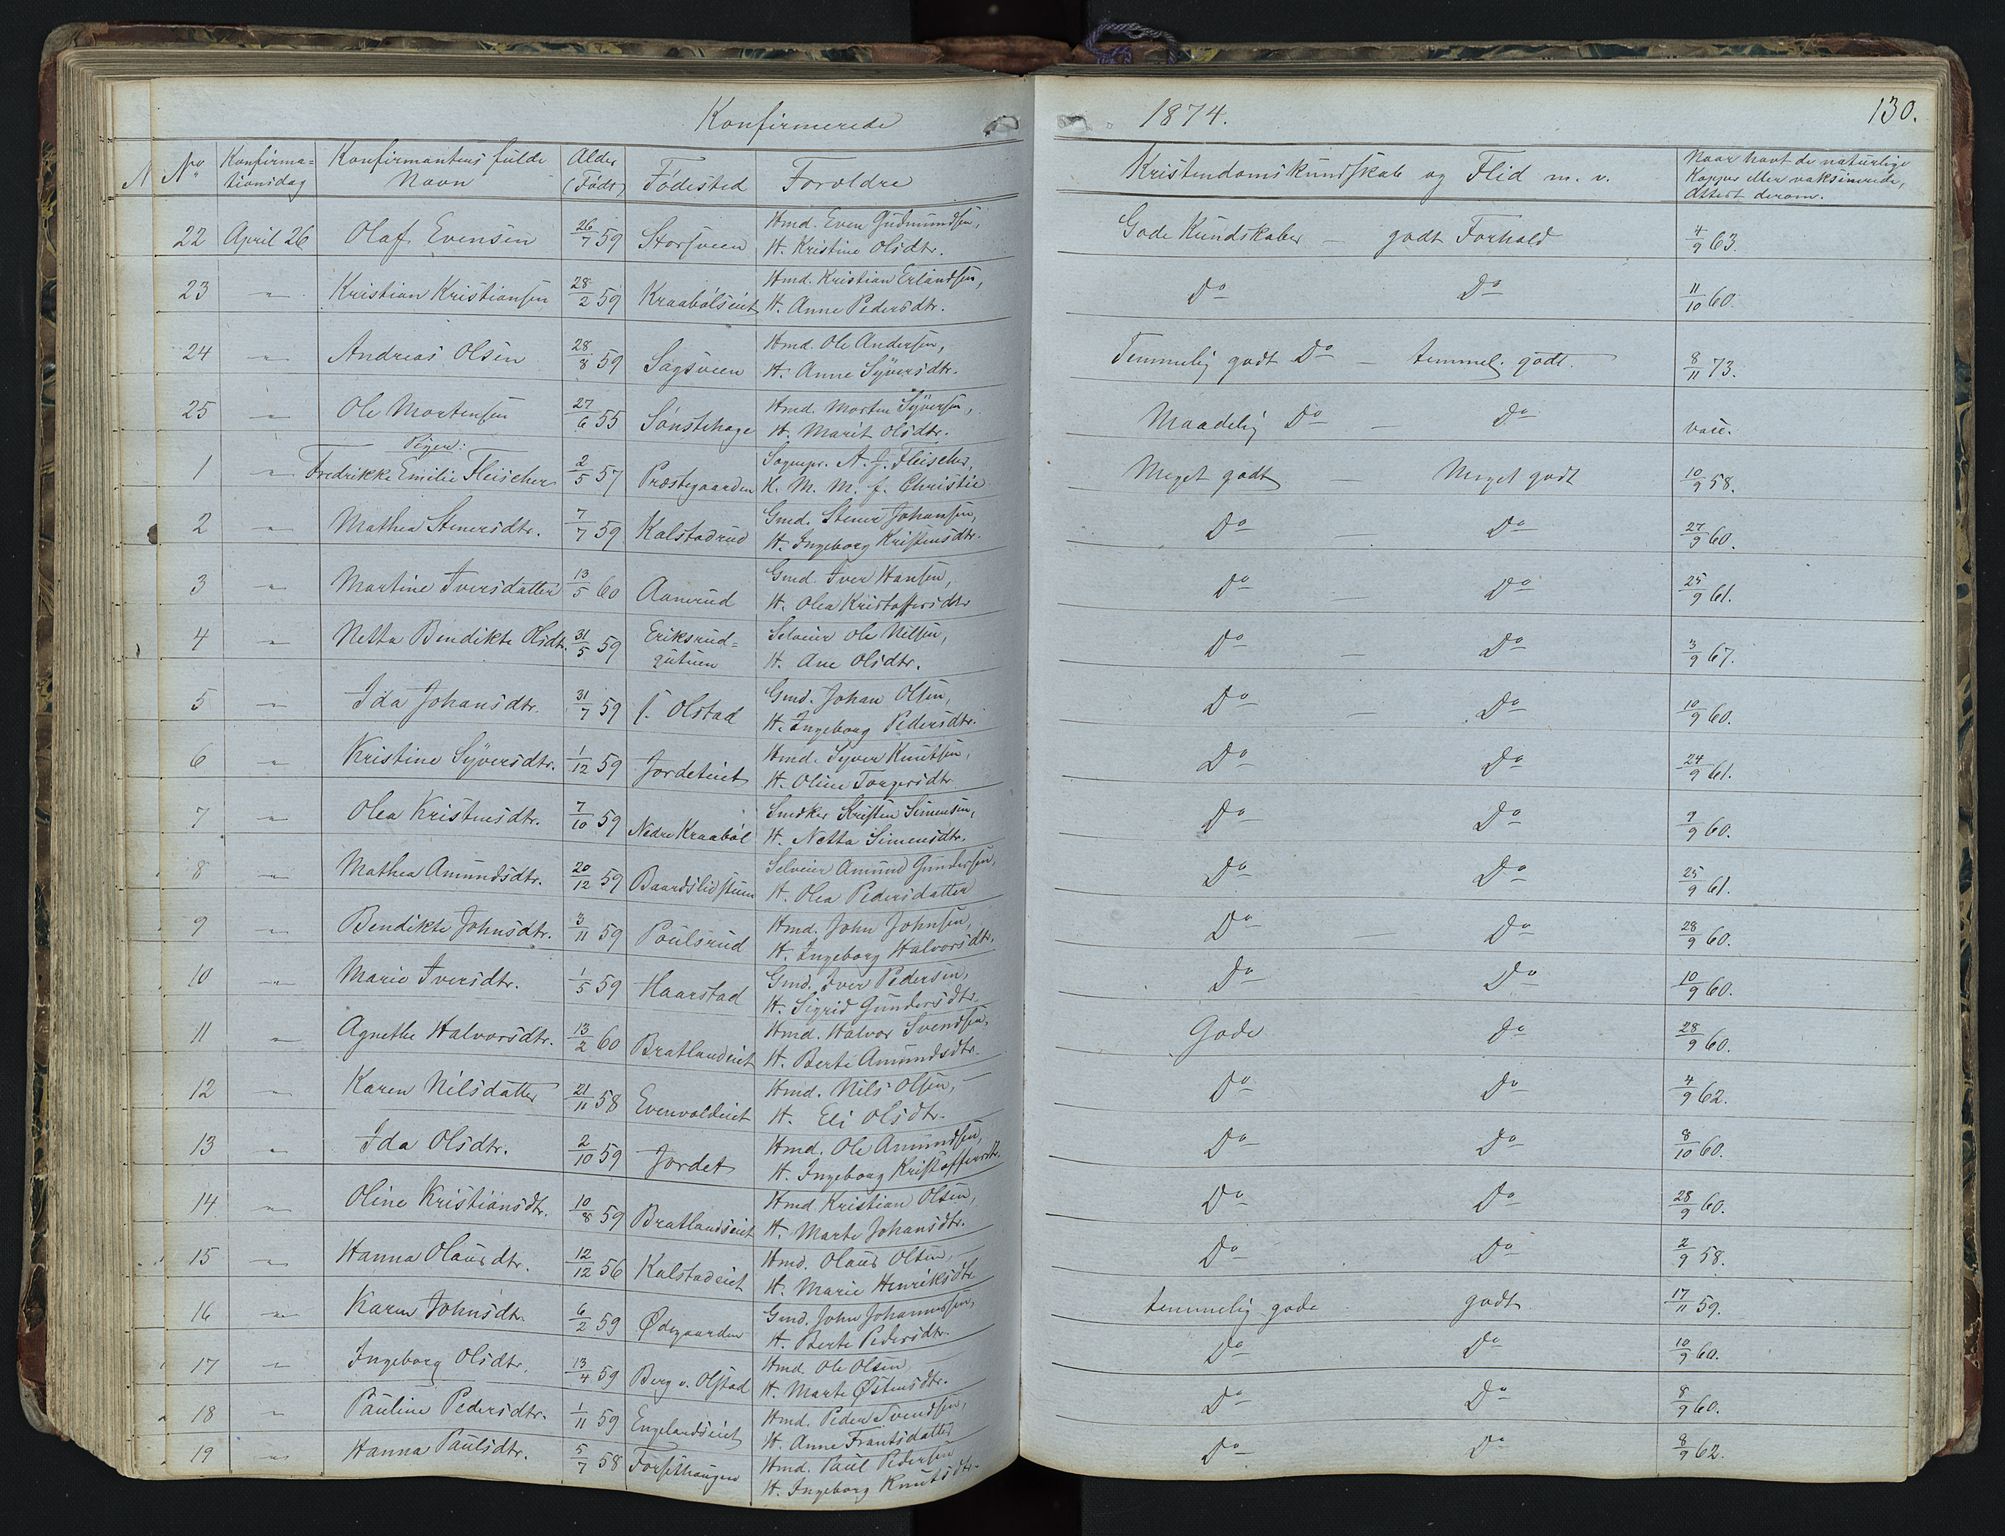 Konfirmerede 1874. 130.
No Konfirmationsdag Konfirmantens fulde Navn Alder (Født) Fødested Forældre Kristendomskundskab og Flid m. v. Naar havt de naturlige Kopper eller vaksinerede, Attest derom.
22 April 26 Olaf Evensen 26/7 59 Storsveen Hmd. Even Gudmundsen, H. Kristine Olsdtr. Gode Kundskaber — godt Forhold 4/9 63.
23 " Kristian Kristiansen 28/2 59 Kraabølseiet Hmd. Kristian Erlandsen, H. Anne Pedersdtr. Do Do 11/10 60.
24 " Andreas Olsen 28/8 59 Sagsveen Hmd. Ole Andersen, H. Anne Syversdtr. Temmelig godt Do — temmel. godt. 8/11 73.
25 " Ole Mortensen 27/6 55 Sønstehage Hmd. Morten Syversen, H. Marit Olsdtr. Maadelig Do — Do vacc.
Piger:
1 " Fredrikke Emilie Fleischer 2/5 57 Præstegaarden Sognepr. A. J. Fleischer, H. M. M. f. Christie Meget godt — Meget godt 10/9 58.
2 " Mathea Stenersdtr. 7/7 59 Kalstadrud Gmd. Stener Johansen, H. Ingeborg Kristensdtr. Do — Do 27/9 60.
3 " Martine Iversdatter 13/5 60 Aamrud Gmd. Iver Hansen, H. Olea Kristoffersdtr Do Do 25/9 61.
4 " Netta Bendikte Olsdtr. 31/5 59 Eriksrud-gutuen Selveier Ole Nilsen, H. Ane Olsdtr. Do — Do 3/9 67.
5 " Ida Johansdtr. 31/7 59 s. Olstad Gmd. Johan Olsen, H. Ingeborg Pedersdtr. Do — Do 10/9 60.
6 " Kristine Syversdtr. 1/12 59 Jordeteiet Hmd. Syver Knutsen, H. Oline Torgersdtr Do Do 24/9 61.
7 " Olea Kristensdtr. 7/10 59 Nedre Kraabøl Kristen Simensen, H. Netta Simensdtr. Do Do 7/9 60.
8 " Mathea Amundsdtr. 20/12 59 Baardslidstuen Selveier Amund Gundersen, H. Olea Pedersdatter Do Do 25/9 61.
9 " Bendikte Johnsdtr. 3/11 59 Poulsrud Hmd. John Johnsen, H. Ingeborg Halvorsdtr. Do — Do 28/9 60.
10 " Marie Iversdtr. 1/5 59 Haarstad Gmd. Iver Pedersen, H. Sigrid Gundersdtr. Do Do 10/9 60.
11 " Agnethe Halvorsdtr. 13/2 60 Bratlandeiet Hmd. Halvor Svendsen, H. Berte Amundsdtr. Gode do 28/9 60.
12 " Karen Nilsdatter 21/11 58 Evenvoldeiet Hmd. Nils Olsen, H. Eli Olsdtr. Do Do 4/9 62.
13 " Ida Olsdtr. 2/10 59 Jordet Hmd. Ole Amundsen, H. Ingeborg Kristoffersdtr. Do Do 8/10 60.
14 " Oline Kristiansdtr. 10/8 59 Bratlandseiet Hmd. Kristian Olsen, H. Marte Johansdtr. Do Do 28/9 60.
15 " Hanna Olausdtr. 12/12 56 Kalstadeiet Hmd. Olaus Olsen, H. Marie Henriksdtr Do Do 2/9 58.
16 " Karen Johnsdtr. 6/2 59 Ødegaarden Gmd. John Johannessen, H. Berte Pedersdtr. temmelig gode godt 17/11 59.
17 " Ingeborg Olsdtr. 13/4 59 Berg v. Olstad Hmd. Ole Olsen, H. Marte Østensdtr. Do Do 10/9 60.
18 " Pauline Pedersdtr. 1/11 59 Engelandseiet Hmd. Peder Svendsen, H. Anne Frantsdatter Do Do 8/9 60.
19 " Hanna Paulsdtr. 5/7 58 Forsethaugen Hmd. Paul Pedersen H. Ingeborg Knutsdtr. Do Do 8/9 62.